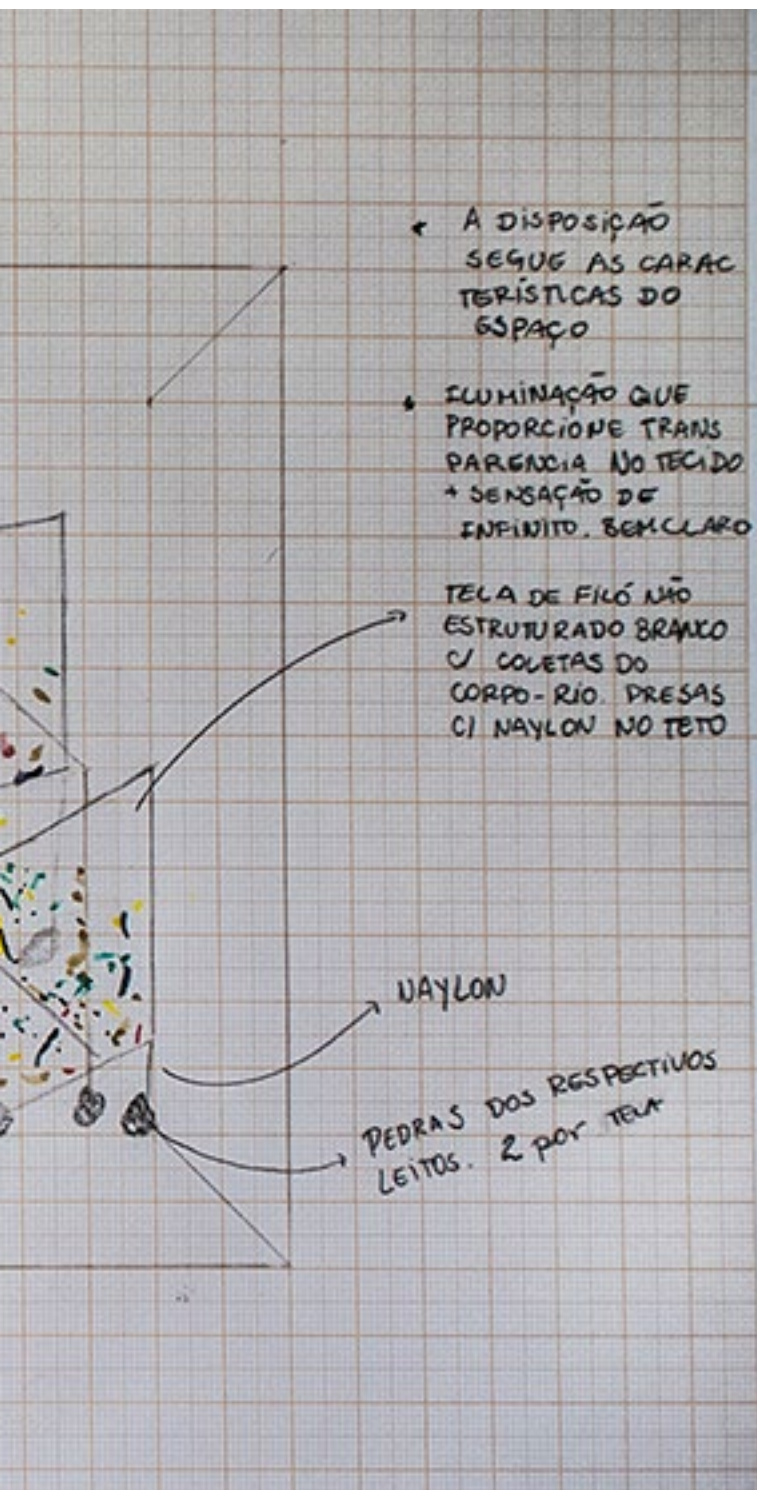 • A DISPOSIÇÃO
SEGUE AS CARAC
TERÍSTICAS DO
ESPAÇO
• ILUMINAÇÃO QUE
PROPORCIONE TRANS
PARENCIA NO TECIDO
+ SENSAÇÃO DE
INFINITO. BEM CLARO
TELA DE FILÓ NÃO
ESTRUTURADO BRANCO
C/ COLETAS DO
CORPO-RIO. PRESAS
C/ NAYLON NO TETO
NAYLON
PEDRAS DOS RESPECTIVOS
LEITOS. 2 por TELA